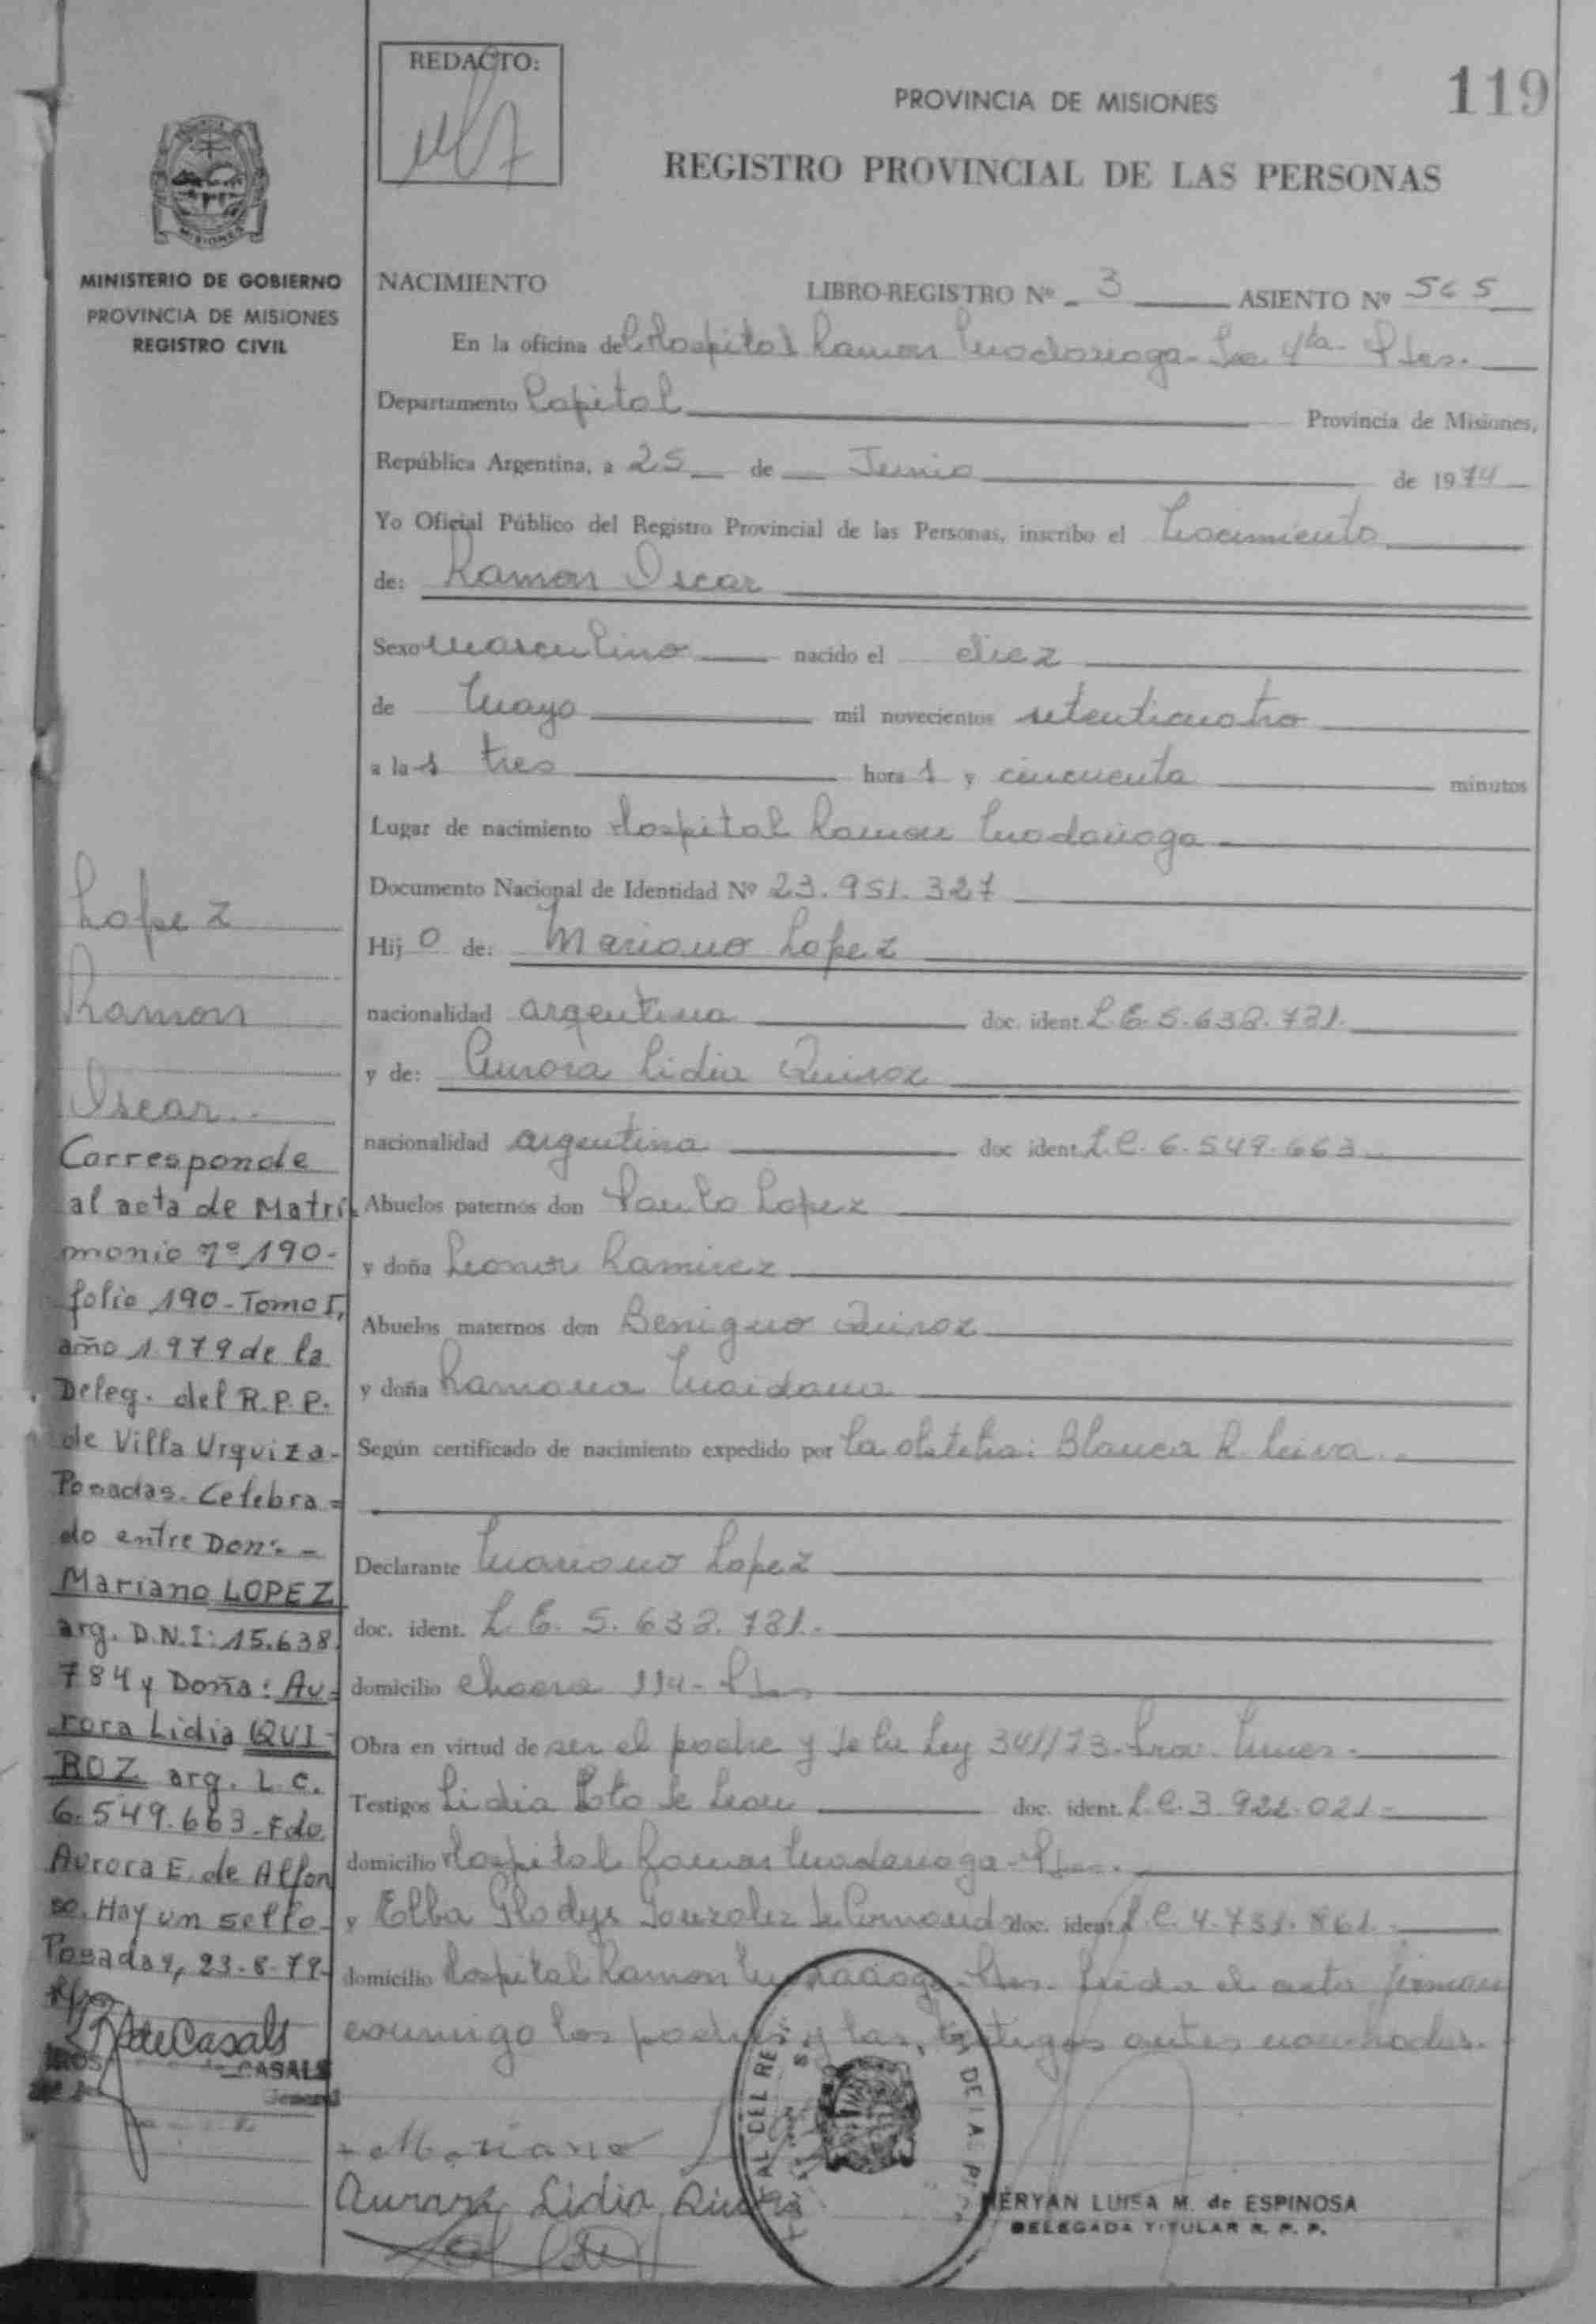 REDACTO:
119
PROVINCIA DE MISIONES
REGISTRO PROVINCIAL DE LAS PERSONAS
MISIONES
MINISTERIO DE GOBIERNO
PROVINCIA DE MISIONES
REGISTRO CIVIL
NACIMIENTO
LIBRO-REGISTRO Nº 3 ASIENTO Nº 565
En la oficina del Hospital Ramon Madariaga- Sec 4ta- Pdas.
Departamento Capital Provincia de Misiones,
República Argentina, a 25 de Junio de 1974
Yo Oficial Público del Registro Provincial de las Personas, inscribo el Nacimiento
de: Ramon Oscar
Sexo Masculino nacido el diez
de Mayo mil novecientos setenticuatro
a las tres horas y cincuenta minutos
Lugar de nacimiento Hospital Ramon Madariaga
Documento Nacional de Identidad Nº 23.951.327
Hijo de: Mariano Lopez
nacionalidad argentina doc. ident. L.E. 5.638.781.
y de: Aurora Lidia Quiroz
nacionalidad argentina doc ident. L.C. 6.549.663
Abuelos paternos don Paulo Lopez
y doña Leonor Ramirez
Abuelos maternos don Benigno Quiroz
y doña Ramona Maidana
Según certificado de nacimiento expedido por la obstetra: Blanca R. Leiva
Declarante Mariano Lopez
doc. ident. L.E. 5.638.781.
domicilio chacra 114- Pdas
Obra en virtud de ser el padre y de la Ley 341/73-
Testigos Lidia Soto de Leon doc. ident. L.C. 3.922.021-
domicilio Hospital Ramon Madariaga- Pdas.
y Elba Gladys Gonzalez de doc. ident. L.C. 4.731.861
domicilio Hospital Ramon Madariaga- Pdas. Leida el acta firman
conmigo los padres y las testigos antes nombradas.
Lopez
Ramon
Oscar
Corresponde
al acta de Matri
monio nº 190-
folio 190- Tomo I,
año 1979 de la
Deleg. del R.P.P.
de Villa Urquiza-
Posadas. Celebra=
do entre Don:-
Mariano LOPEZ
arg. D.N.I: 15.638.
784 y Doña: Au=
rora Lidia QUI-
ROZ arg. L.C.
6.549.663-Fdo
Aurora E. de Alfon
so. Hay un sello-
Posadas, 23-8-79-
de Casals
CASALS
General
Mariano
Aurora Lidia Quiroz
MERYAN LUISA M. de ESPINOSA
DELEGADA TITULAR R. P. P.